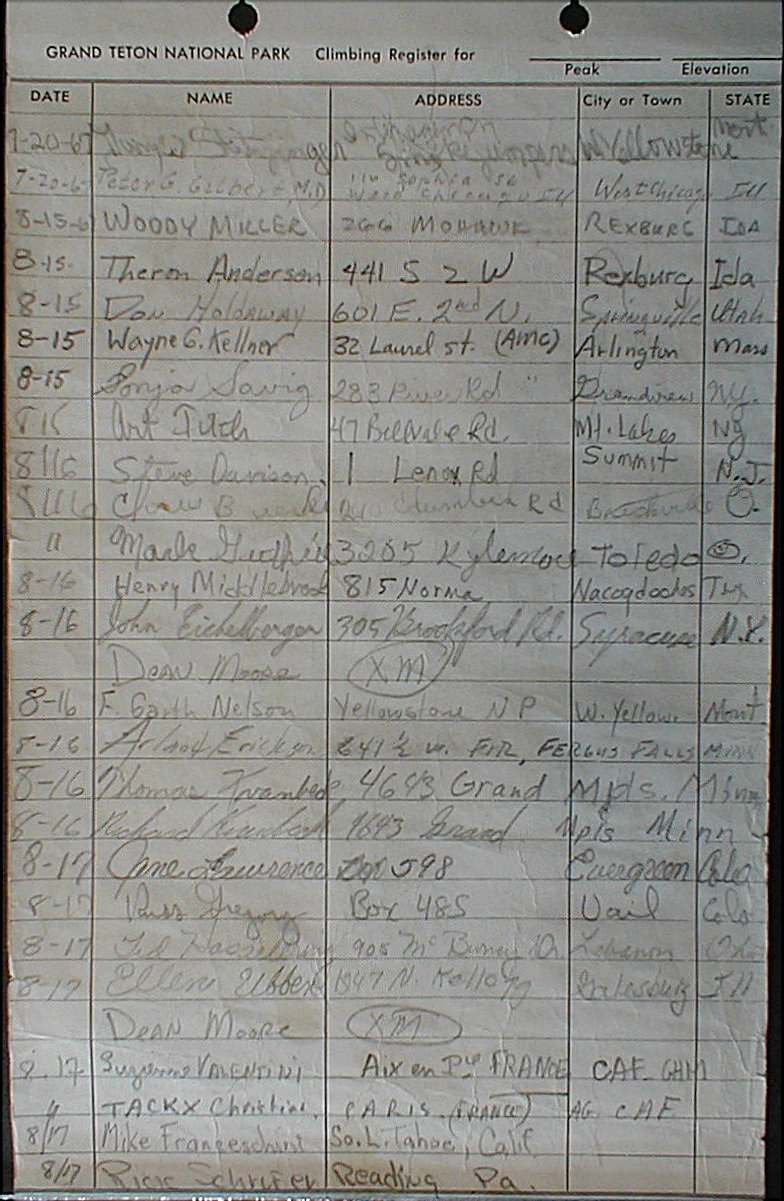 GRAND TETON NATIONAL PARK Climbing Register for
Peak Elevation
DATE NAME ADDRESS City or Town STATE
7-20-67 Smokejumpers W Yellowstone Mont
7-20-67 Peter G. Gilbert, M.D. West Chicago Ill
8-15-6 WOODY MILLER 266 MOHAWK REXBURG IDA
8-15- Theron Anderson 441 S 2 W Rexburg Ida
8-15 Don Holdaway 601 E. 2nd N. Springville Utah
8-15 Wayne G. Kellner 32 Laurel St. (AMC) Arlington Mass
8-15 Sonja Savig 283 River Rd " Grandview N.Y.
8 15 Art Fitch 47 Rd. Mt. Lakes NJ
8/16 Steve Davison 1 Lenox Rd Summit N.J.
8/16 Columbia Rd O.
" Mark 3205 Kylemore Toledo O.
8-16 Henry Middlebrook 815 Norma Nacogdoches Tex
8-16 John Eichelberger 305 Brookford Rd. Syracuse N.Y.
DEAN MOORE XM
8-16 F. Garth Nelson Yellowstone N P W. Yellow. Mont
8-16 Arland Erickson 641 ½ W. FIR, FERGUS FALLS MINN
8-16 Thomas Kvanbeck 4643 Grand Mpls. Minn
8-16 Richard Kvanbeck 4643 Grand Mpls Minn
8-17 Jane Lawrence Box 598 Evergreen Colo
8-17 Russ Gregory Box 485 Vail Colo
8-17 Ted 908 Lebanon
8-17 Ellen Gibben 1047 N. Kellogg Galesburg Ill
DEAN MOORE XM
8.17 Suzanne VALENTINI Aix en Pce FRANCE CAF GHM
" TACKX Christine. PARIS. (FRANCE) AG. CAF
8/17 Mike Franceschini So. L. Tahoe, Calif.
8/17 Rick Reading Pa.